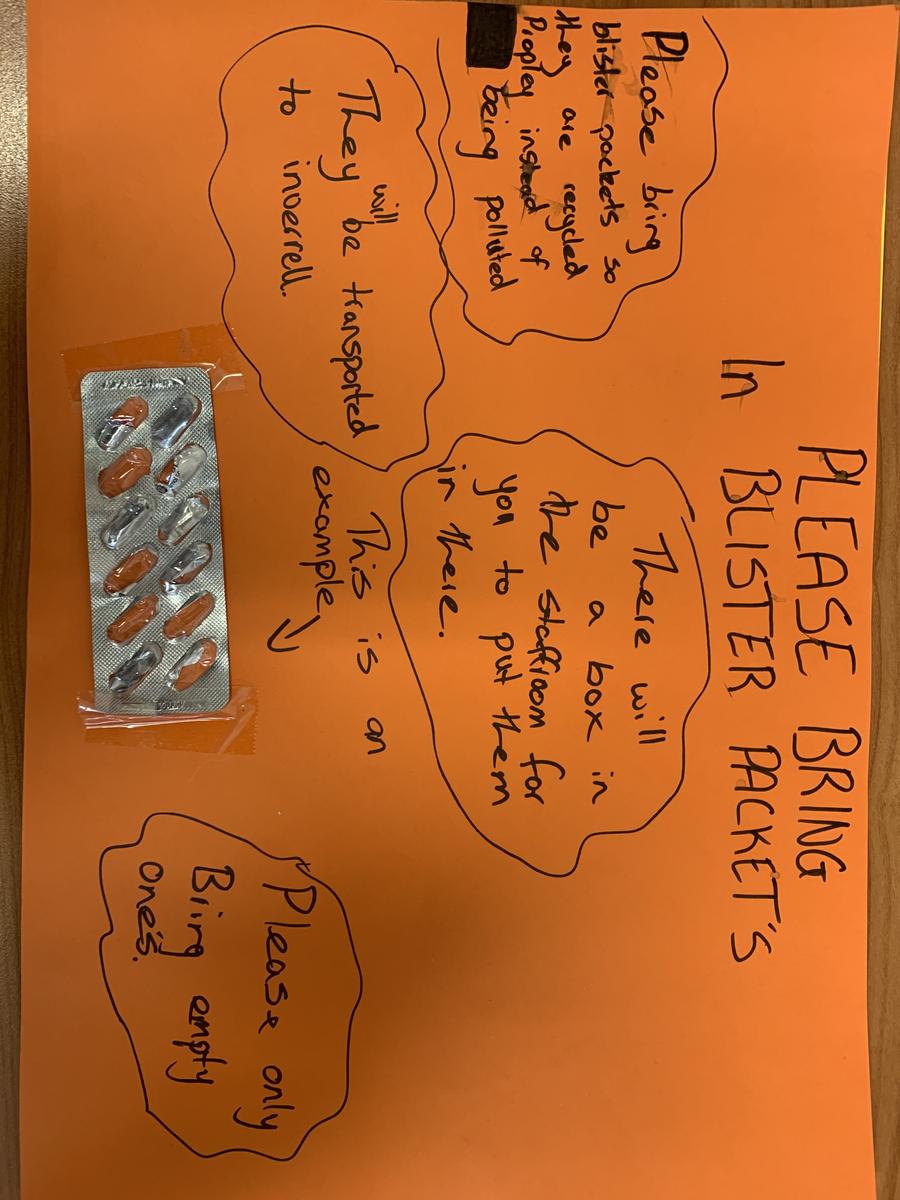 PLEASE BRING
In BLISTER PACKET'S
Please bring
blister packets so
they are recycled
Propley instead of
being polluted
There will
be a box in
the staffroom for
you to put them
in there.
They will be transported
to inverrell.
This is an
example
Please only
Bring empty
one's.